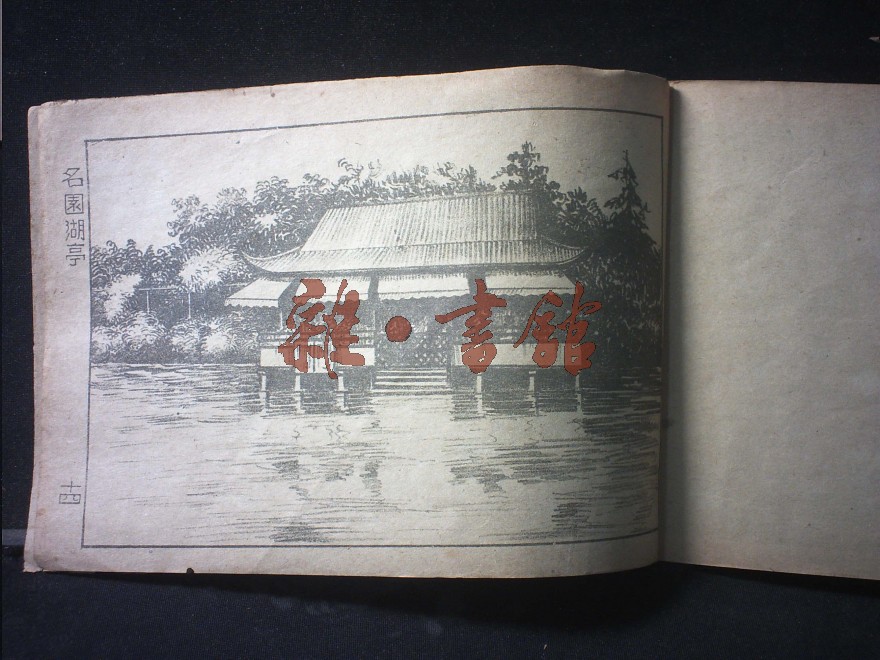 名園湖亭
十四
雜·書館